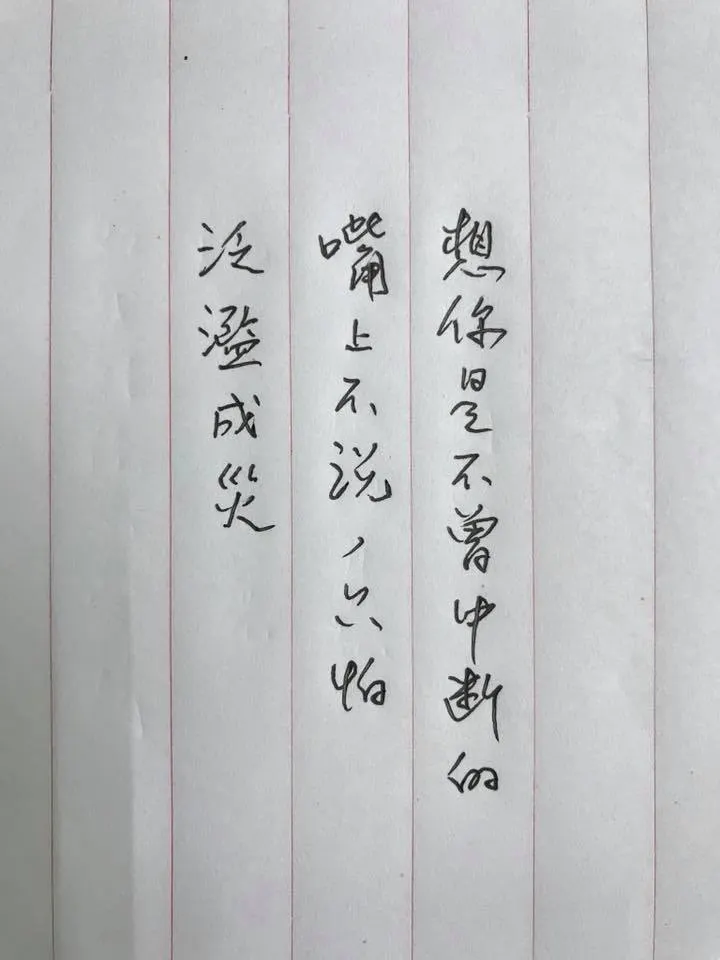 想你是不曾中断的
嘴上不说,只怕
泛滥成災